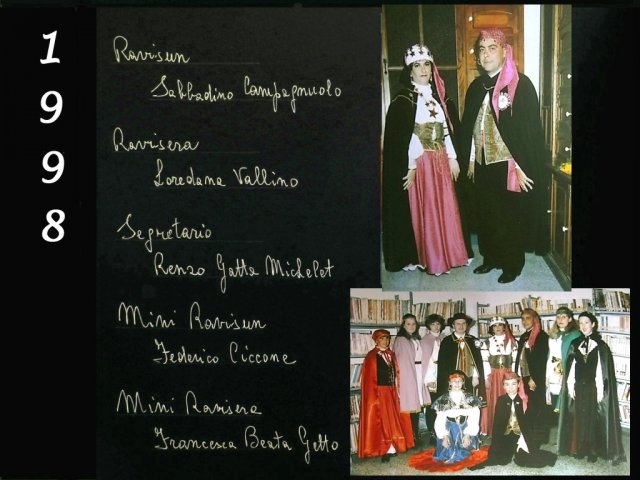 1998
Ravisun
Sabbadino Campagnuolo
Ravisera
Loredana Vallino
Segretario
Renzo Gatta Michelet
Mini Ravisun
Federico Ciccone
Mini Ravisera
Francesca Beata Getto